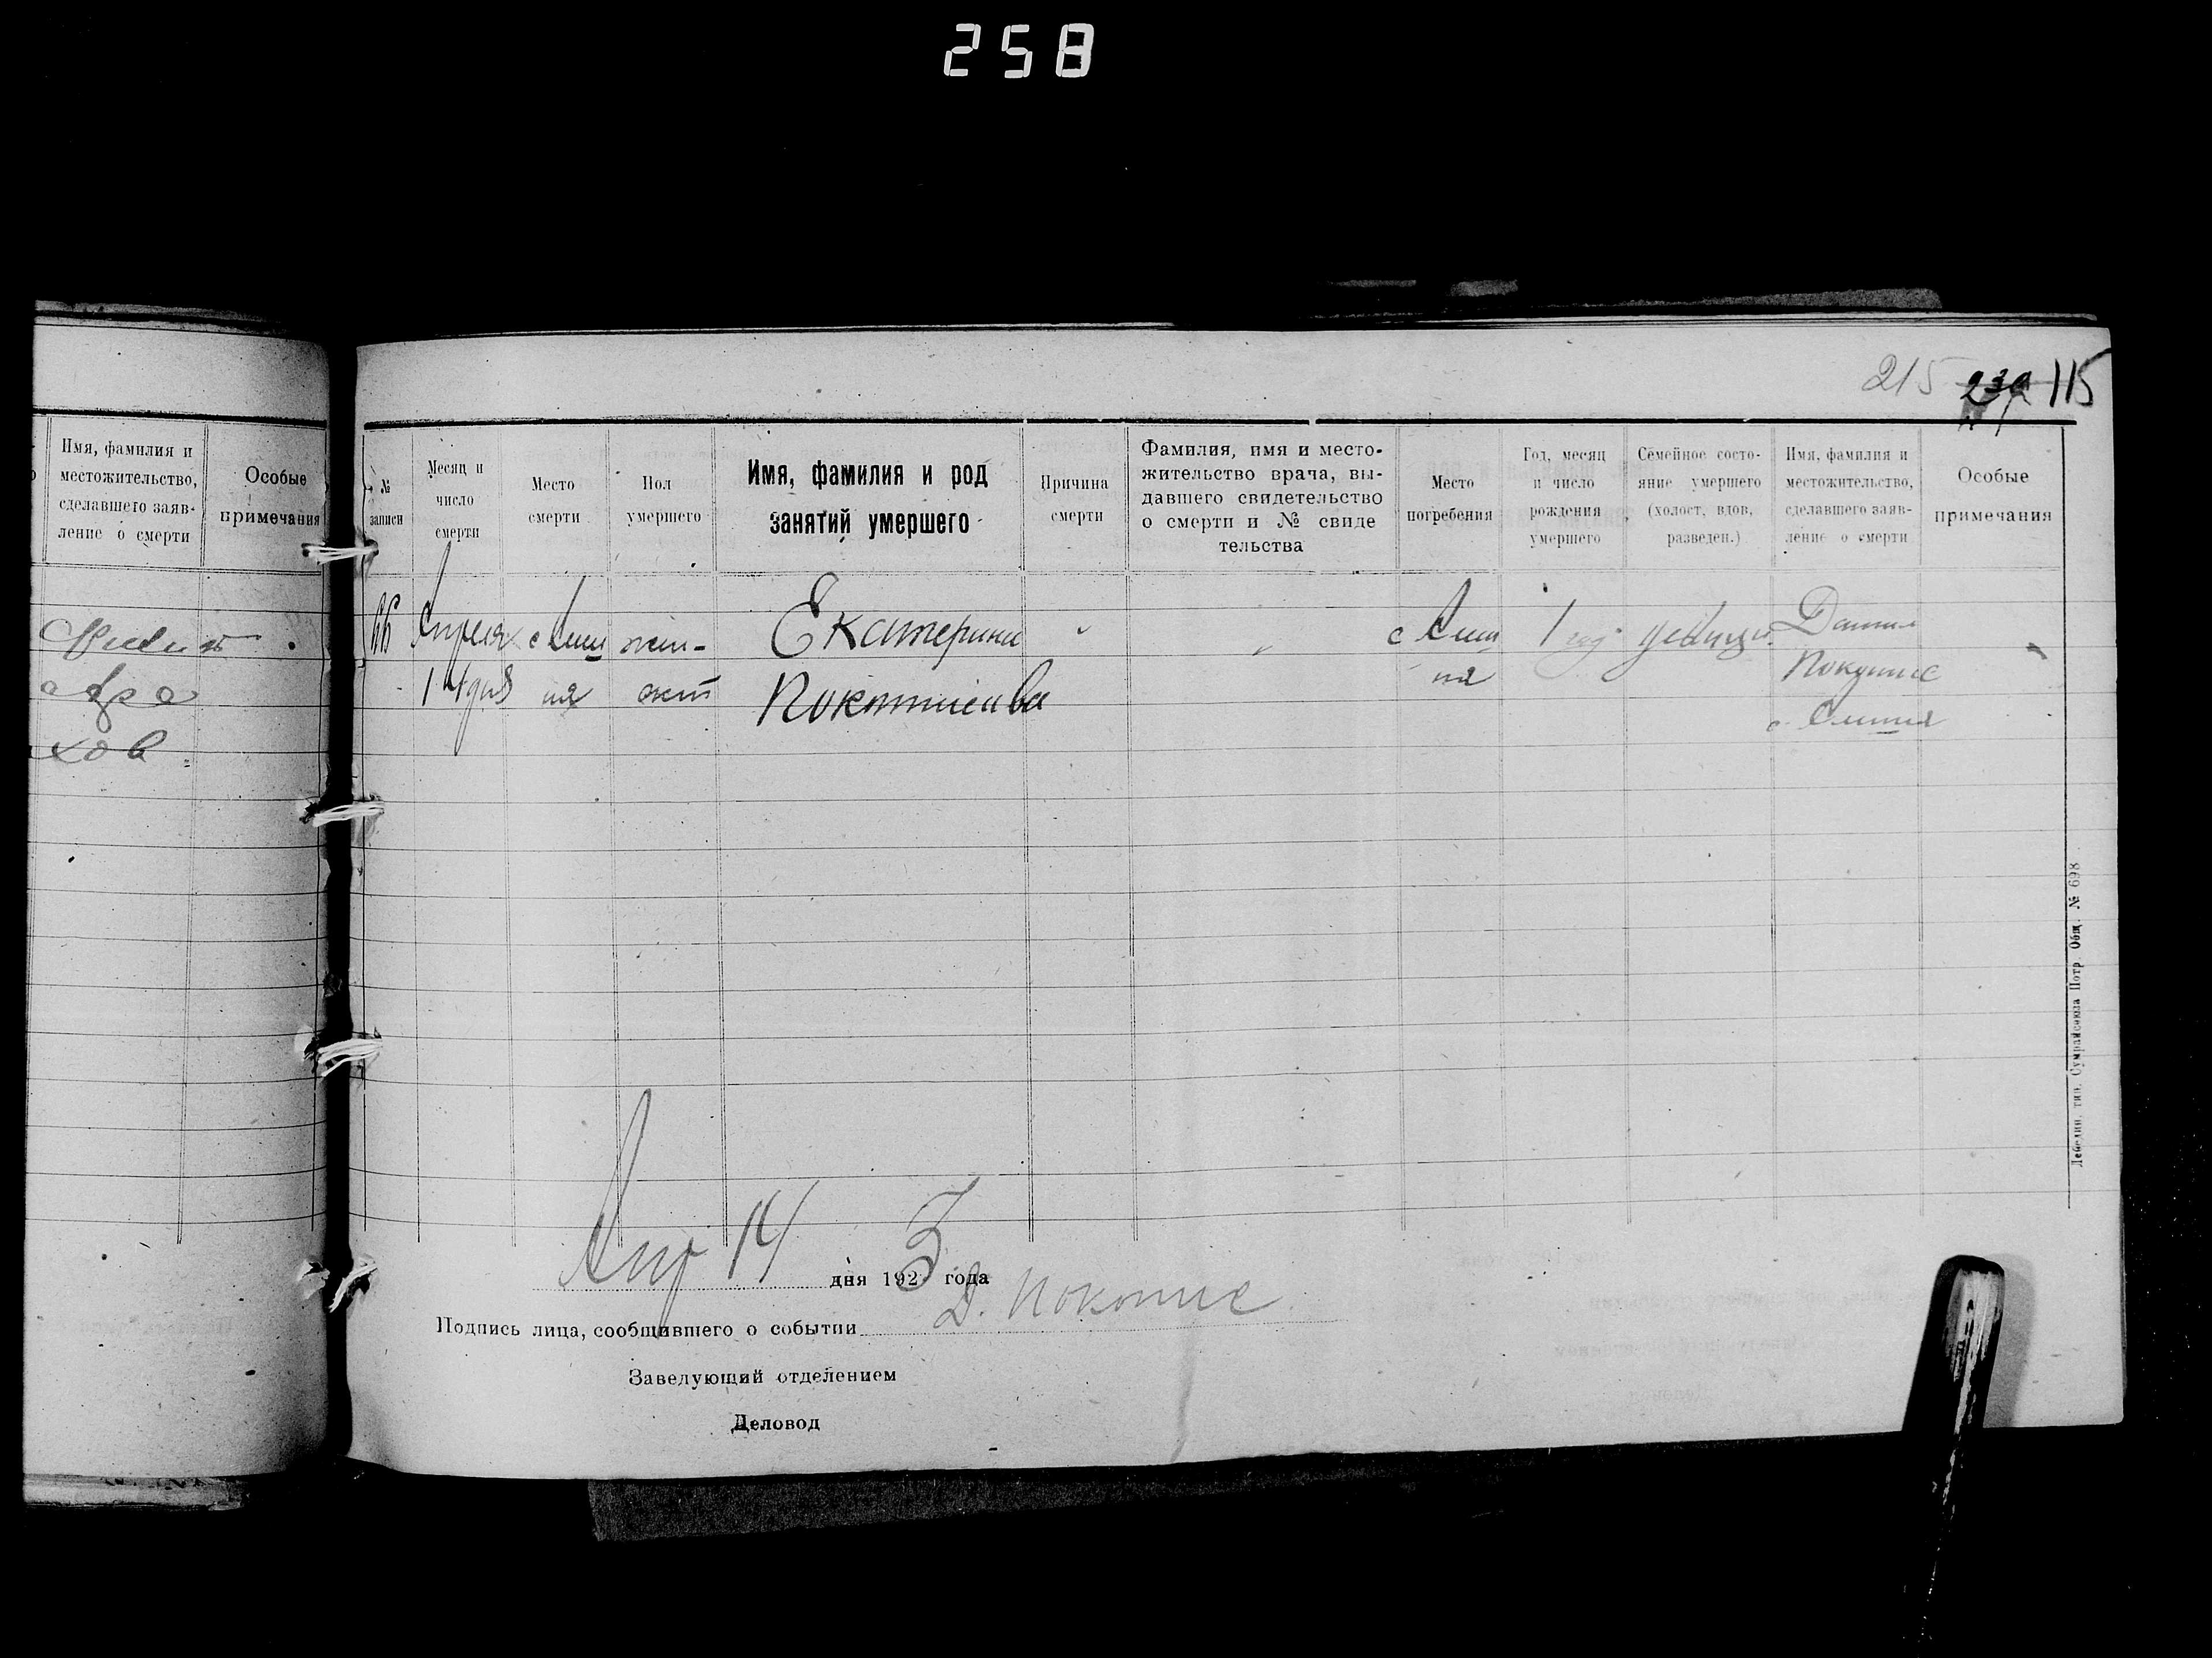 258
215 115
Имя, фамилия и
местожительство,
сделавшего заяв-
ление о смерти
Особые
примечания
хов
№
записи
Месяц и
число
смерти
Место
смерти
Пол
умершего
Имя, фамилия и род
занятий умершего
Причина
смерти
Фамилия, имя и место-
жительство врача, вы-
давшего свидетельство
о смерти и № свиде
тельства
Место
погребения
Год, месяц
и число
рождения
умершего
Семейное состо-
яние умершего
(холост, вдов,
разведен.)
Имя, фамилия и
местожительство,
сделавшего заяв-
ление о смерти
Особые
примечания
66 Апреля с жен- Екатерина " " с 1 год девица Данил
14 дня ския
Апр 14 дня 1923 года
Подпись лица, сообщившего о событии Д.
Заведующий отделением
Деловод
Лебедин. тип. Сумрайсоюза Потр. Общ. № 698